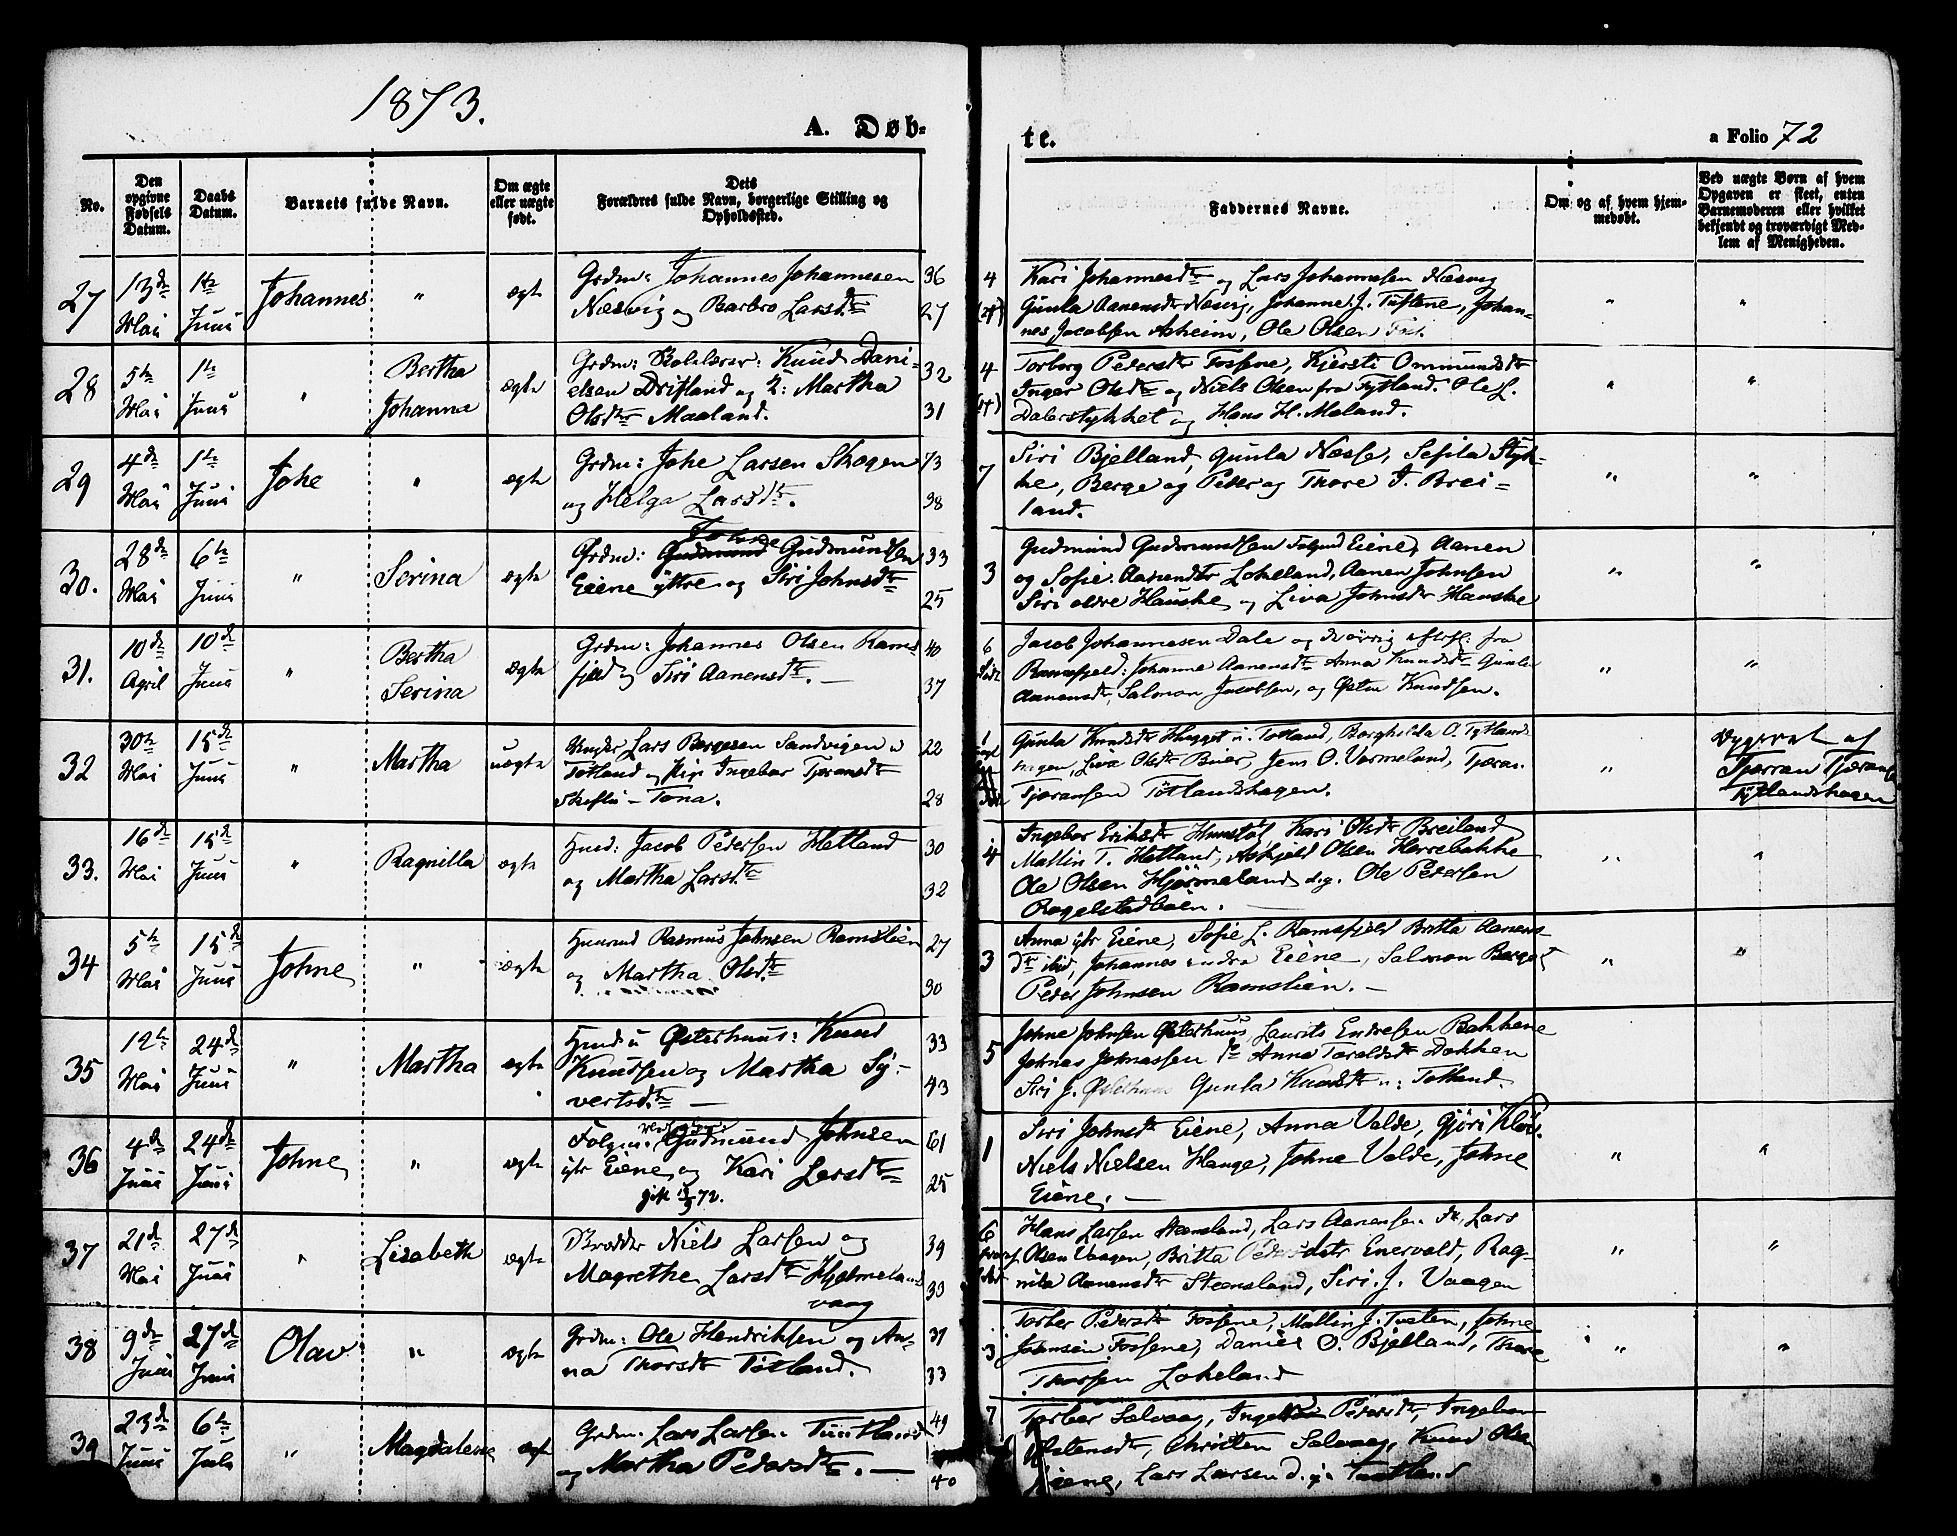 1873.
A. Døb-
te.
a Folio 72
No.
Den opgivne Fødsels Datum.
Daabs Datum.
Barnets fulde Navn.
Om ægte eller uægte født.
Dets Forældres fulde Navn, borgerlige Stilling og Opholdssted.
Faddernes Navne.
Om og af hvem hjemmedøbt.
Ved uægte Børn af hvem Opgaven er skeet, enten Barnemoderen eller hvilket bekjendt og troværdigt Medlem af Menigheden.
27
13de Mai
1ste Juni
Johannes
"
ægte
Grdm: Johannes Johannesen
Næsvig og Barbro Larsdtr
36
27
4
Kari Johannesdtr og Lars Johannesen Næsvig
Gunla Aanensdtr Næsvig, Johanne J. Tuftene, Johan-
nes Jacobsen Asheim, Ole Olsen
"
"
28
5te Mai
1ste Juni
"
Bertha
Johanna
ægte
Grdm: Knud Dani-
elsen Driftland og H: Martha
Olsdtr Maaland.
32
31
4
Torborg Pedersdtr Fossene, Kjersti Ommundsdtr
Inger Olsdtr og Niels Olsen fra Tytland. Ole L.
Dalerstykket og Hans H. Maland.
"
"
29
4de Mai
1ste Juni
Johe
"
ægte
Grdm: Johe Larsen Skogen
og Helga Larsdtr.
73
38
7
Siri Bjelland, Gunla Næsse, Sefila Styk-
ke, Berge og Peder og Thore J. Brei-
land.
"
"
30.
28de Mai
6te Juni
"
Serina
ægte
Grdm: Gudmund Gudmundsen
Eiene ytre og Siri Johnsdtr
33
25
3
Gudmund Gudmundsen Eiene, Aanen
og Sofie Aanendtr Lokeland, Aanen Johnsen
Siri Hauske og Liva Johnsdtr Hauske
"
"
31.
10de April
10de Juni
"
Bertha
Serina
ægte
Grdm: Johannes Olsen Rams
fjeld og Siri Aanensdtr. —
40
37
6
Jacob Johannesen Dale og de øvrig fra
Ramsfjeld: Johanne Aanensdtr Anna Knudsdtr Gunla
Aanensdtr, Salmon Jacobsen, og Østen Knudsen.
"
"
32
30te Mai
15de Juni
"
Martha
uægte
Ungkr Lars Bergesen Sandvigen
Totland og Ingebor Tjøransdtr
22
28
Gunla Knudsdtr Totland, Borghilda O. Tytland
hagen, Liva Olsdtr, Jens O. Vormeland, Tjøran
Tjøransen Totlandshagen.
"
af
Tjørran Tjøran
Tytlandshagen
33.
16de Mai
15de Juni
"
Ragnilla
ægte
Husd: Jacob Pedersen Hetland
og Martha Larsdtr
30
32
4
Ingebor Eriksdtr, Kari Olsdtr Breiland
Mallin T. Hetland, Askjeld Olsen Herrebakke
Ole Olsen Hjørmeland og Ole Pedersen
"
"
34
5te Mai
15de Juni
Johne
"
ægte
Husmd Rasmus Johnsen Ramslien
og Martha Olsdtr
27
30
3
Anna ytr Eiene, Sofie L. Ramsfjeld Britha Aanens
dtr ibid, Johannes indre Eiene, Salmon Berge
Peder Johnsen Ramslien. —
"
"
35
12te Mai
24de Juni
"
Martha
ægte
Husd u Østerhuus: Knud
Knudsen og Martha Sy-
vertsdtr. —
33
43
5
Johne Johnsen Østerhuus, Laurits Endresen Bakkene
Johnas Johnassen do Anna Taraldsdtr Dokken
Siri J. Gunla Knudsdtr u: Totland
36
4de Juni
24de Juni
Johne
"
ægte
Gudmund Johnsen
ytr Eiene og Kari Larsdtr
61
25
1
Siri Johnsdtr Eiene, Anna Valde, Gjøri
Niels Nielsen Hauge, Johne Valde, Johne
Eiene. —
"
"
37
21de Mai
27de Juni
"
Lisabeth
ægte
Brødder Niels Larsen og
Magrethe Larsdtr Hjelmelands
vaag
39
30
6
Hans Larsen Steensland, Lars Aanensen do, Lars
Olsen Vaagen, Britta Pedersdtr Enervald, Rag-
nila Aanensdtr Steensland, Siri J. Vaagen
"
"
38
9de Juni
27de Juni
Olav
"
ægte
Grdm: Ole Hendriksen og An-
na Thorsdtr Totland.
31
33
3
Torber Pedersdtr Fossene, Mallin J. Tveten, Johne
Johnsen Fossene, Daniel O. Bjelland, Thore
Thorsen Lokeland
"
"
39
23de Juni
6te Juli
"
Magdalene
ægte
Grdm: Lars Larsen Tuntland
og Martha Pedersdtr. —
49
40
7
Torber Salvaag, Pedersdtr, Ingebor
Østensdtr, Christen Salvaag, Knud Olsen
Eiene, Lars Larsen d. y. Tuntland